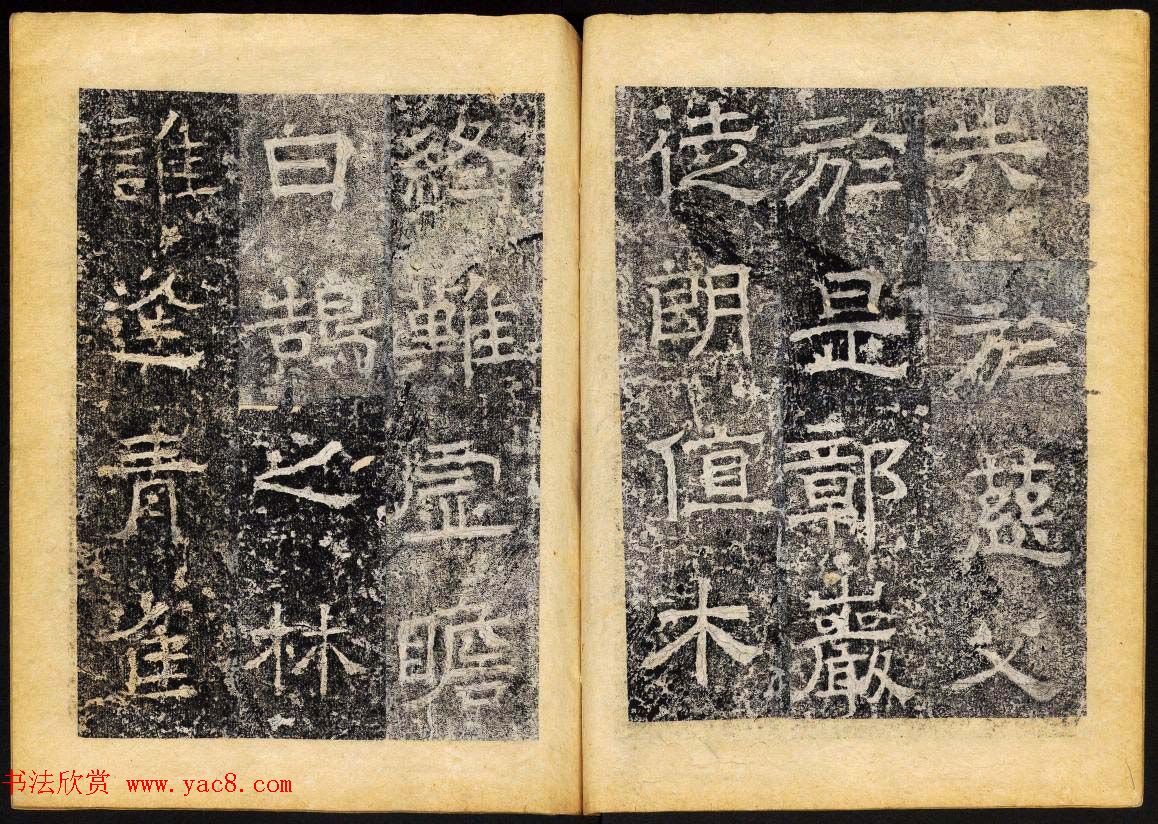 共於慈父
於是鄣巖
徒朗值木
絡雖虛瞻
白鵠之林
誰逢青雀
书法欣赏 www.yac8.com